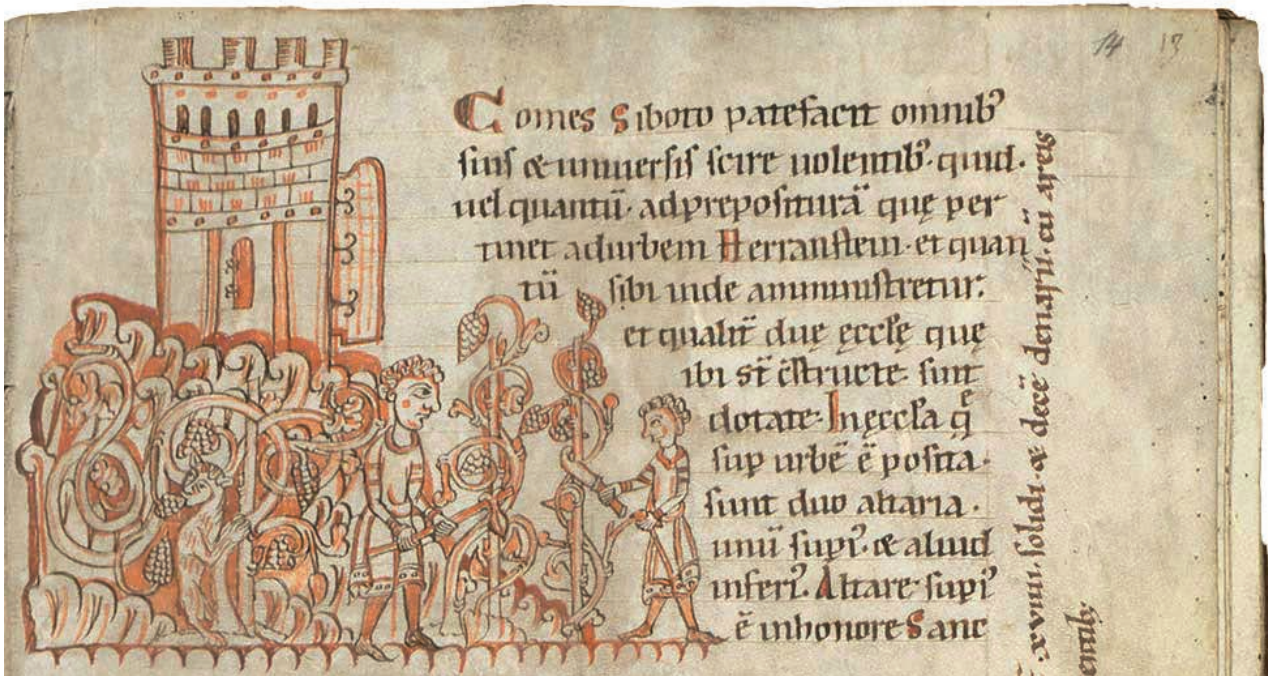 14 13
Comes Siboto patefacit omnib᾽
suis & uniuersis scire uolentib᾽. quid.
uel quantū. ad prepositurā quę per
tinet ad urbem Herranstein. et quan
tū sibi inde amministretur.
et qualit̄ duę ęccłę que
ibi st̄ cōstructe. sunt
dotate. In ęccła q̄
sup urbē ē posita.
sunt duo altaria.
unū supi᾽. & aliud
inferi᾽. Altare supi᾽
ē in honore Sanc
.xviii. solidi. & decē denarii. cū areis